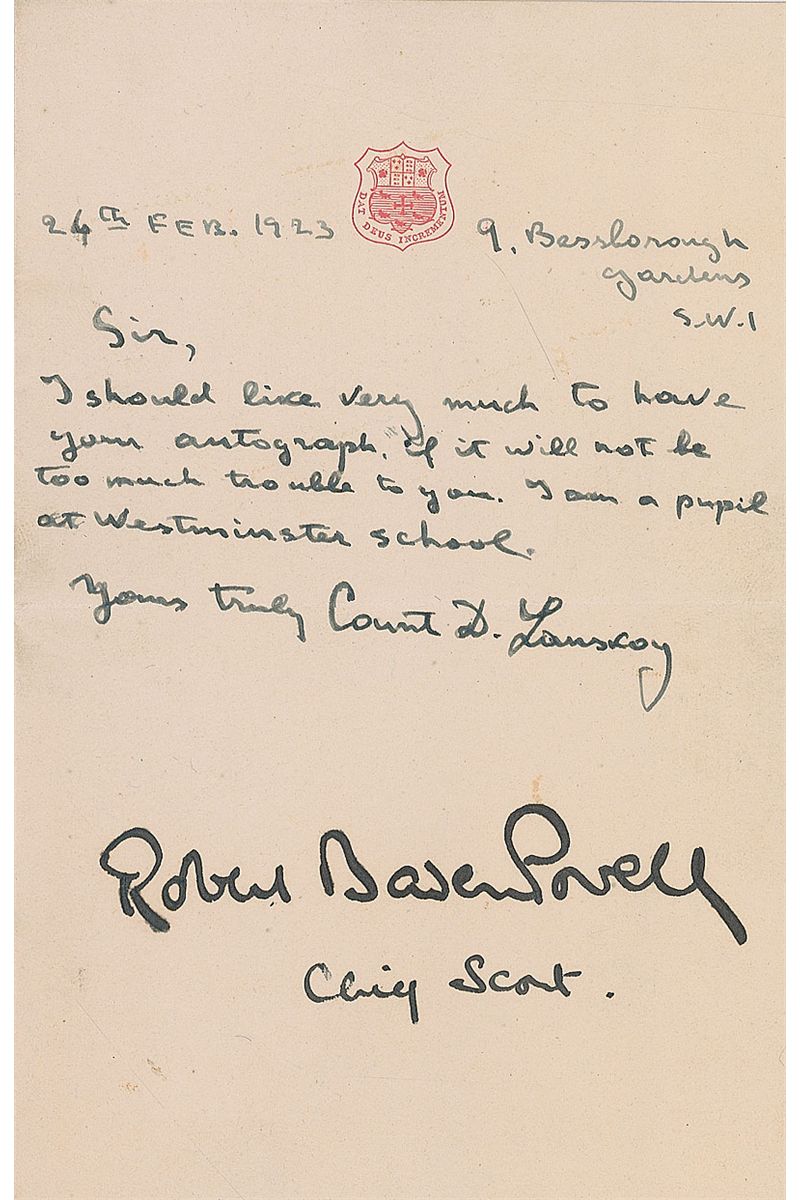 DAT DEUS INCREMENTUM
24th FEB. 1923
9, Bessborough
Gardens
S.W.1
Sir,
I should like very much to have
your autograph, if it will not be
too much trouble to you. I am a pupil
at Westminster school.
Yours truly Count D. Lanskoy
Robert Baden Powell
Chief Scout.